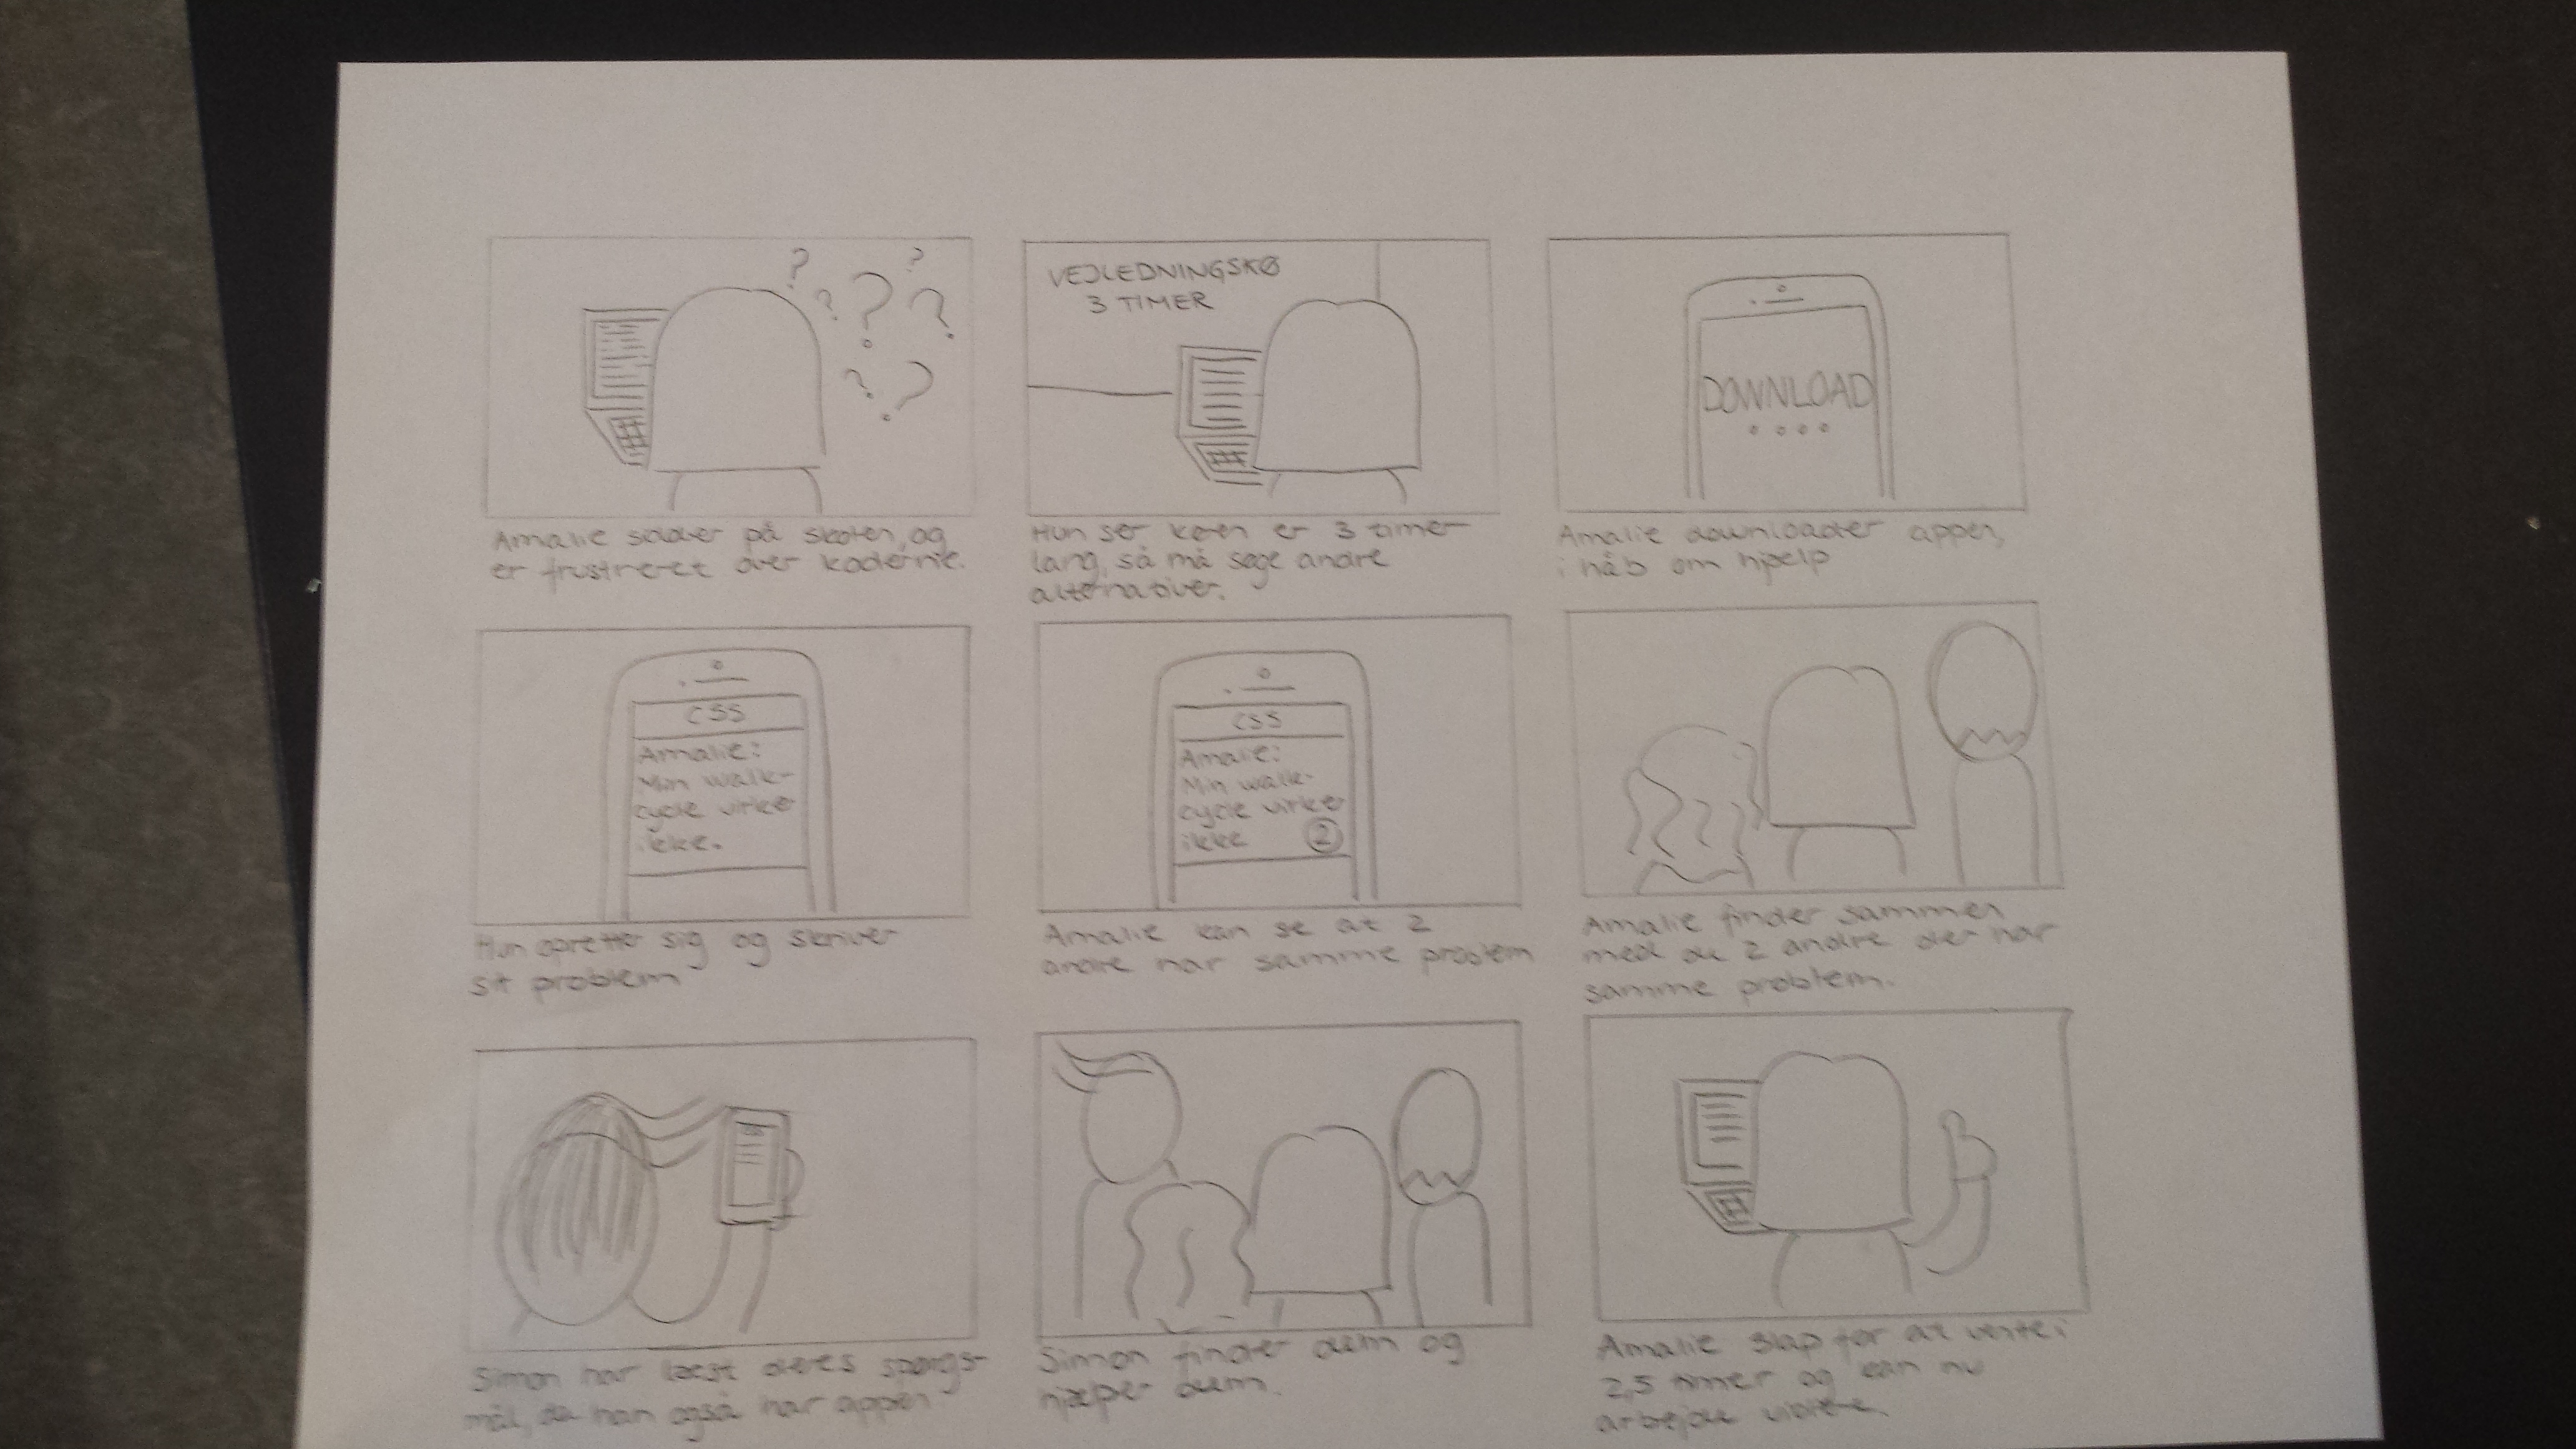 ? ? ? ? ? ? ?
Amalie sidder på skolen, og
er frustreret over koderne.
VEJLEDNINGSKØ
3 TIMER
Hun ser køen er 3 timer
lang, så må søge andre
alternativer.
DOWNLOAD
Amalie downloader appen,
i håb om hjælp
CSS
Amalie:
Min walk-
cycle virker
ikke.
Hun opretter sig og skriver
sit problem
CSS
Amalie:
Min walk-
cycle virker
ikke 2
Amalie kan se at 2
andre har samme problem
Amalie finder sammen
med de 2 andre der har
samme problem.
Simon har læst deres spørgs-
mål, da han også har appen
Simon finder dem og
hjælper dem.
Amalie slap for at vente i
2,5 timer og kan nu
arbejde videre.